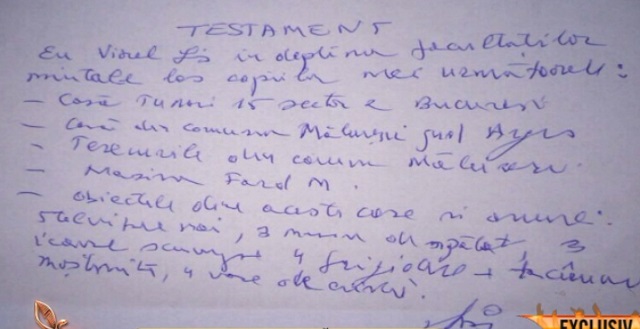 TESTAMENT
Eu Viorel Lis in deplina facultatilor
mintale las copiilor mei următoarele:
- Casă Tunari 15 sector 2 Bucuresti
- Casă din comuna
- Terenurile din comuna
- Masina Ford M.
- obiectele din aceste case si anume:
noi, 3 masini de spălat, 3
icoane scumpe 4 frigidere +
moștenită, 4 vase de
EXCLUSIV